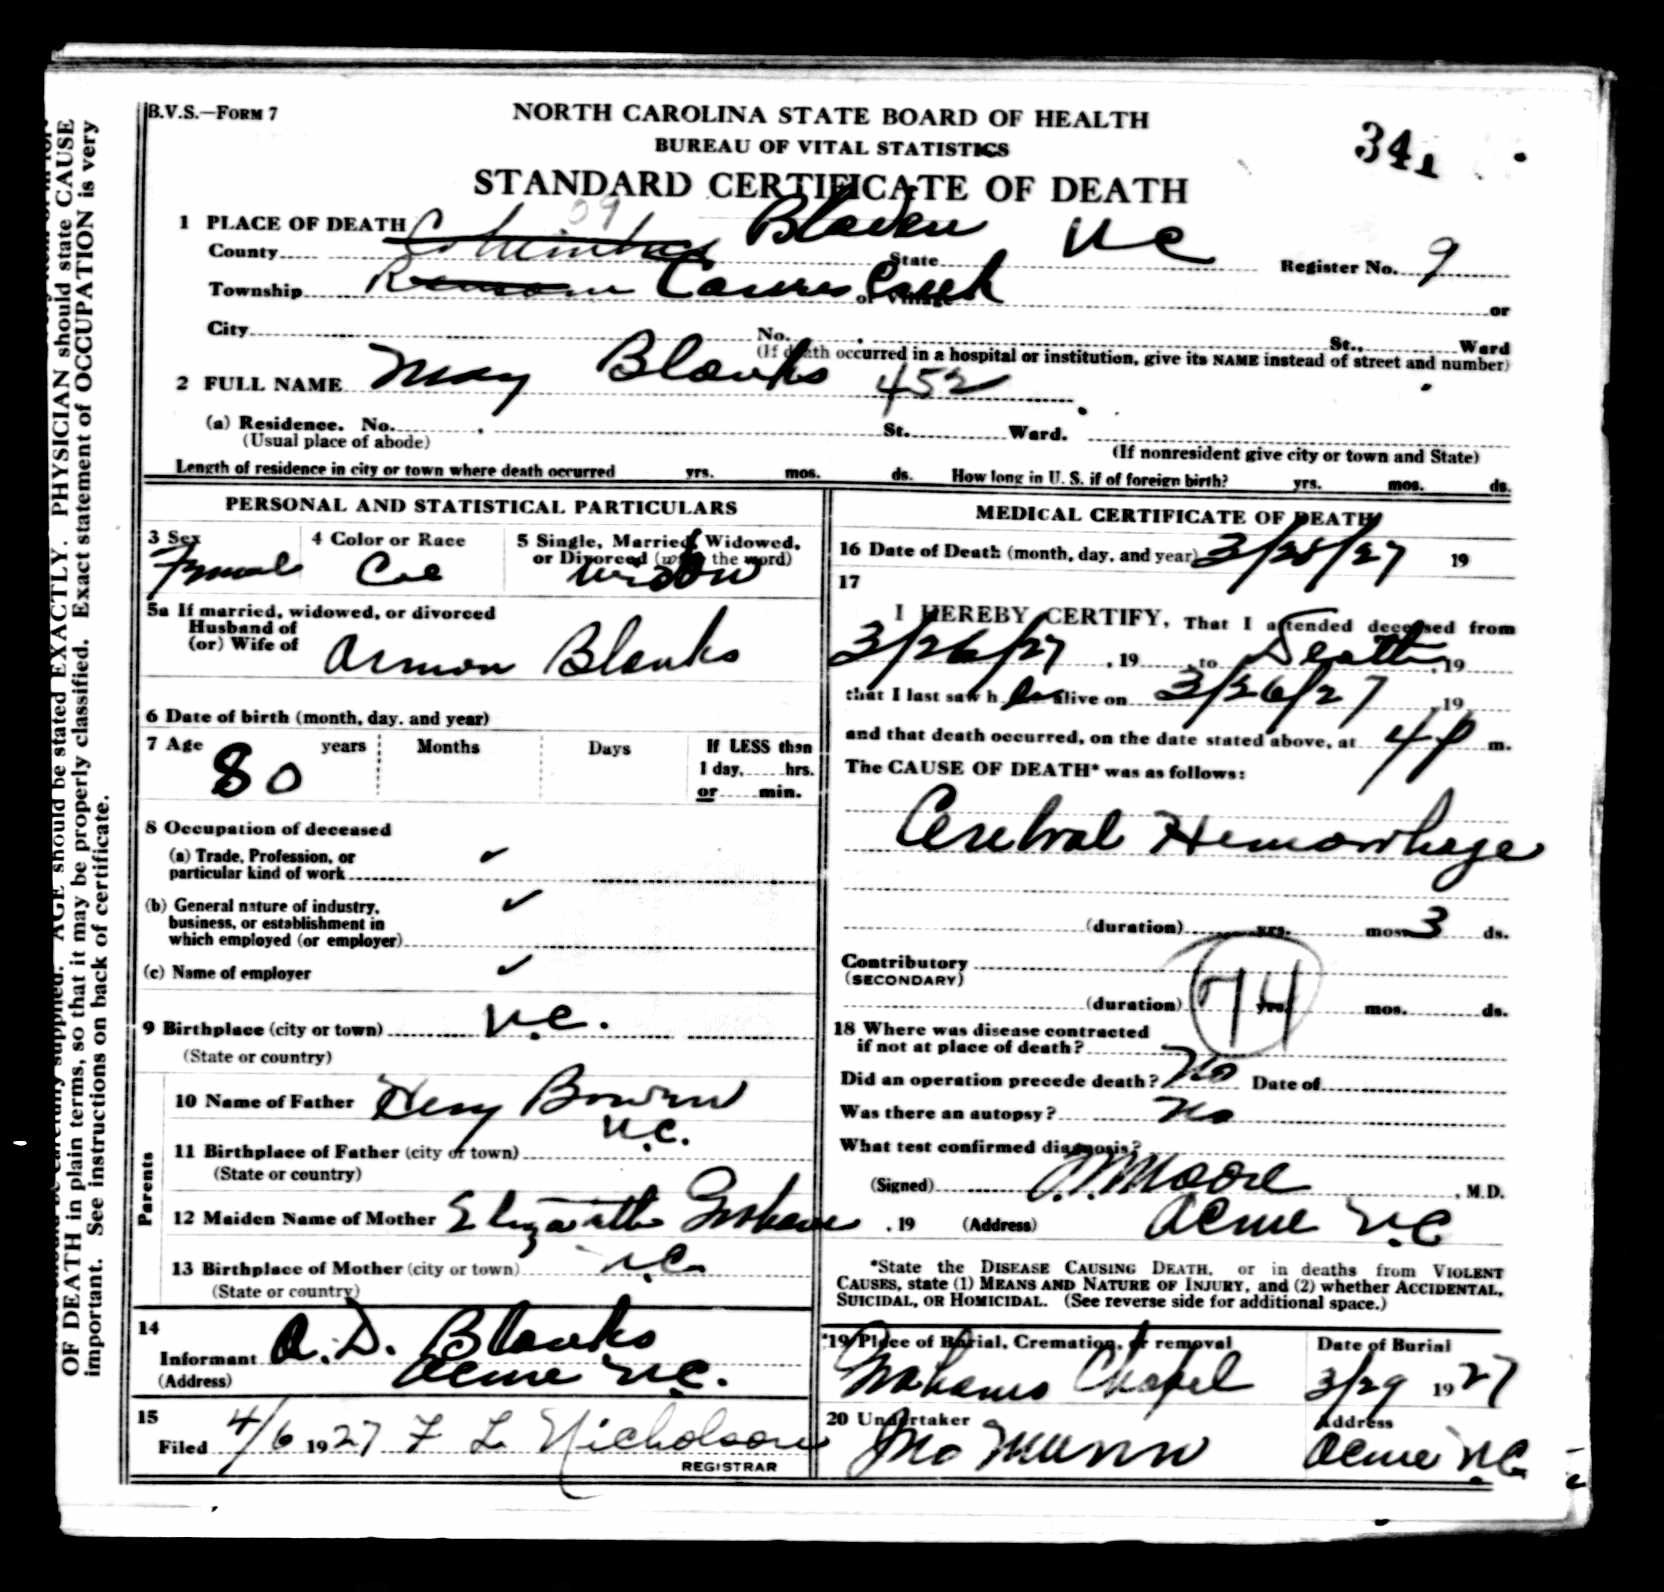 B.V.S.—FORM 7
NORTH CAROLINA STATE BOARD OF HEALTH
BUREAU OF VITAL STATISTICS
STANDARD CERTIFICATE OF DEATH
341
1 PLACE OF DEATH 09
County Columbus Bladen State N C Register No. 9
Township Ransom Carvers Creek or Village or
City No. St., Ward
(If death occurred in a hospital or institution, give its NAME instead of street and number)
2 FULL NAME May Blanks 452
(a) Residence. No. St. Ward.
(Usual place of abode) (If nonresident give city or town and State)
Length of residence in city or town where death occurred yrs. mos. ds. How long in U. S. if of foreign birth? yrs. mos. ds.
PERSONAL AND STATISTICAL PARTICULARS
3 Sex 4 Color or Race 5 Single, Married, Widowed, or Divorced (write the word)
Female Col Widow
5a If married, widowed, or divorced
Husband of
(or) Wife of Armon Blanks
6 Date of birth (month, day, and year)
7 Age 80 years Months Days If LESS than
1 day, hrs.
or min.
8 Occupation of deceased
(a) Trade, Profession, or
particular kind of work ✓
(b) General nature of industry,
business, or establishment in
which employed (or employer) ✓
(c) Name of employer ✓
9 Birthplace (city or town) N.C.
(State or country)
Parents
10 Name of Father Heny Bowen
11 Birthplace of Father (city or town) N.C.
(State or country)
12 Maiden Name of Mother Elizabeth Graham
13 Birthplace of Mother (city or town) N.C.
(State or country)
14
Informant A. D. Blanks
(Address) Acme N.C.
15
Filed 4/6 1927 F L Nicholson
REGISTRAR
MEDICAL CERTIFICATE OF DEATH
16 Date of Death (month, day, and year) 3/28/27 19
17
I HEREBY CERTIFY, That I attended deceased from
3/26/27, 19 , to Death, 19
that I last saw h er alive on 3/26/27, 19
and that death occurred, on the date stated above, at 4 P m.
The CAUSE OF DEATH* was as follows:
Cerebral Hemorrhage
(duration) yrs. mos. 3 ds.
Contributory
(SECONDARY)
(duration) yrs. mos. ds.
74
18 Where was disease contracted
if not at place of death?
Did an operation precede death? No Date of
Was there an autopsy? No
What test confirmed diagnosis?
(Signed) Moore, M.D.
, 19 (Address) Acme N.C
*State the DISEASE CAUSING DEATH, or in deaths from VIOLENT
CAUSES, state (1) MEANS AND NATURE OF INJURY, and (2) whether ACCIDENTAL,
SUICIDAL, OR HOMICIDAL. (See reverse side for additional space.)
19 Place of Burial, Cremation, or removal Date of Burial
Grahams Chapel 3/29 1927
20 Undertaker Address
Jno Munn Acme N.C
AGE should be stated EXACTLY. PHYSICIAN should state CAUSE
OF DEATH in plain terms, so that it may be properly classified. Exact statement of OCCUPATION is very
important. See instructions on back of certificate.